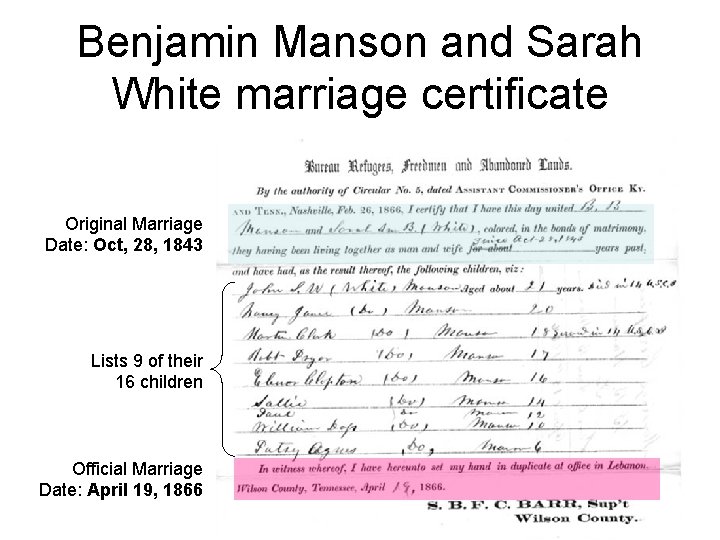 Benjamin Manson and Sarah
White marriage certificate
Bureau Refugees, Freedmen and Abandoned Lands.
By the authority of Circular No. 5, dated ASSISTANT COMMISSIONER'S OFFICE KY.
AND TENN., Nashville, Feb. 26, 1866, I certify that I have this day united B. B
Manson and Sarah Ann B (White), colored, in the bonds of matrimony,
they having been living together as man and wife for about since Oct 28, 1843 years past,
and have had, as the result thereof, the following children, viz:
John S. W (White) Manson Aged about 21 years. in 14 U.S.C.I
Nancy Jane (Do) Manson 20
Martin Clark (Do) Manson 18 in 14 U.S.C.I
Robt (Do) Manson 17
Elenor Clipton (Do) Manson 16
Sallie Do Manson 14
Do Manson 12
William (Do) Manson 10
Patsy Agnes (Do) Manson 6
In witness whereof, I have hereunto set my hand in duplicate at office in Lebanon,
Wilson County, Tennessee, April 19, 1866.
S. B. F. C. BARR, Sup't
Wilson County.
Original Marriage
Date: Oct, 28, 1843
Lists 9 of their
16 children
Official Marriage
Date: April 19, 1866